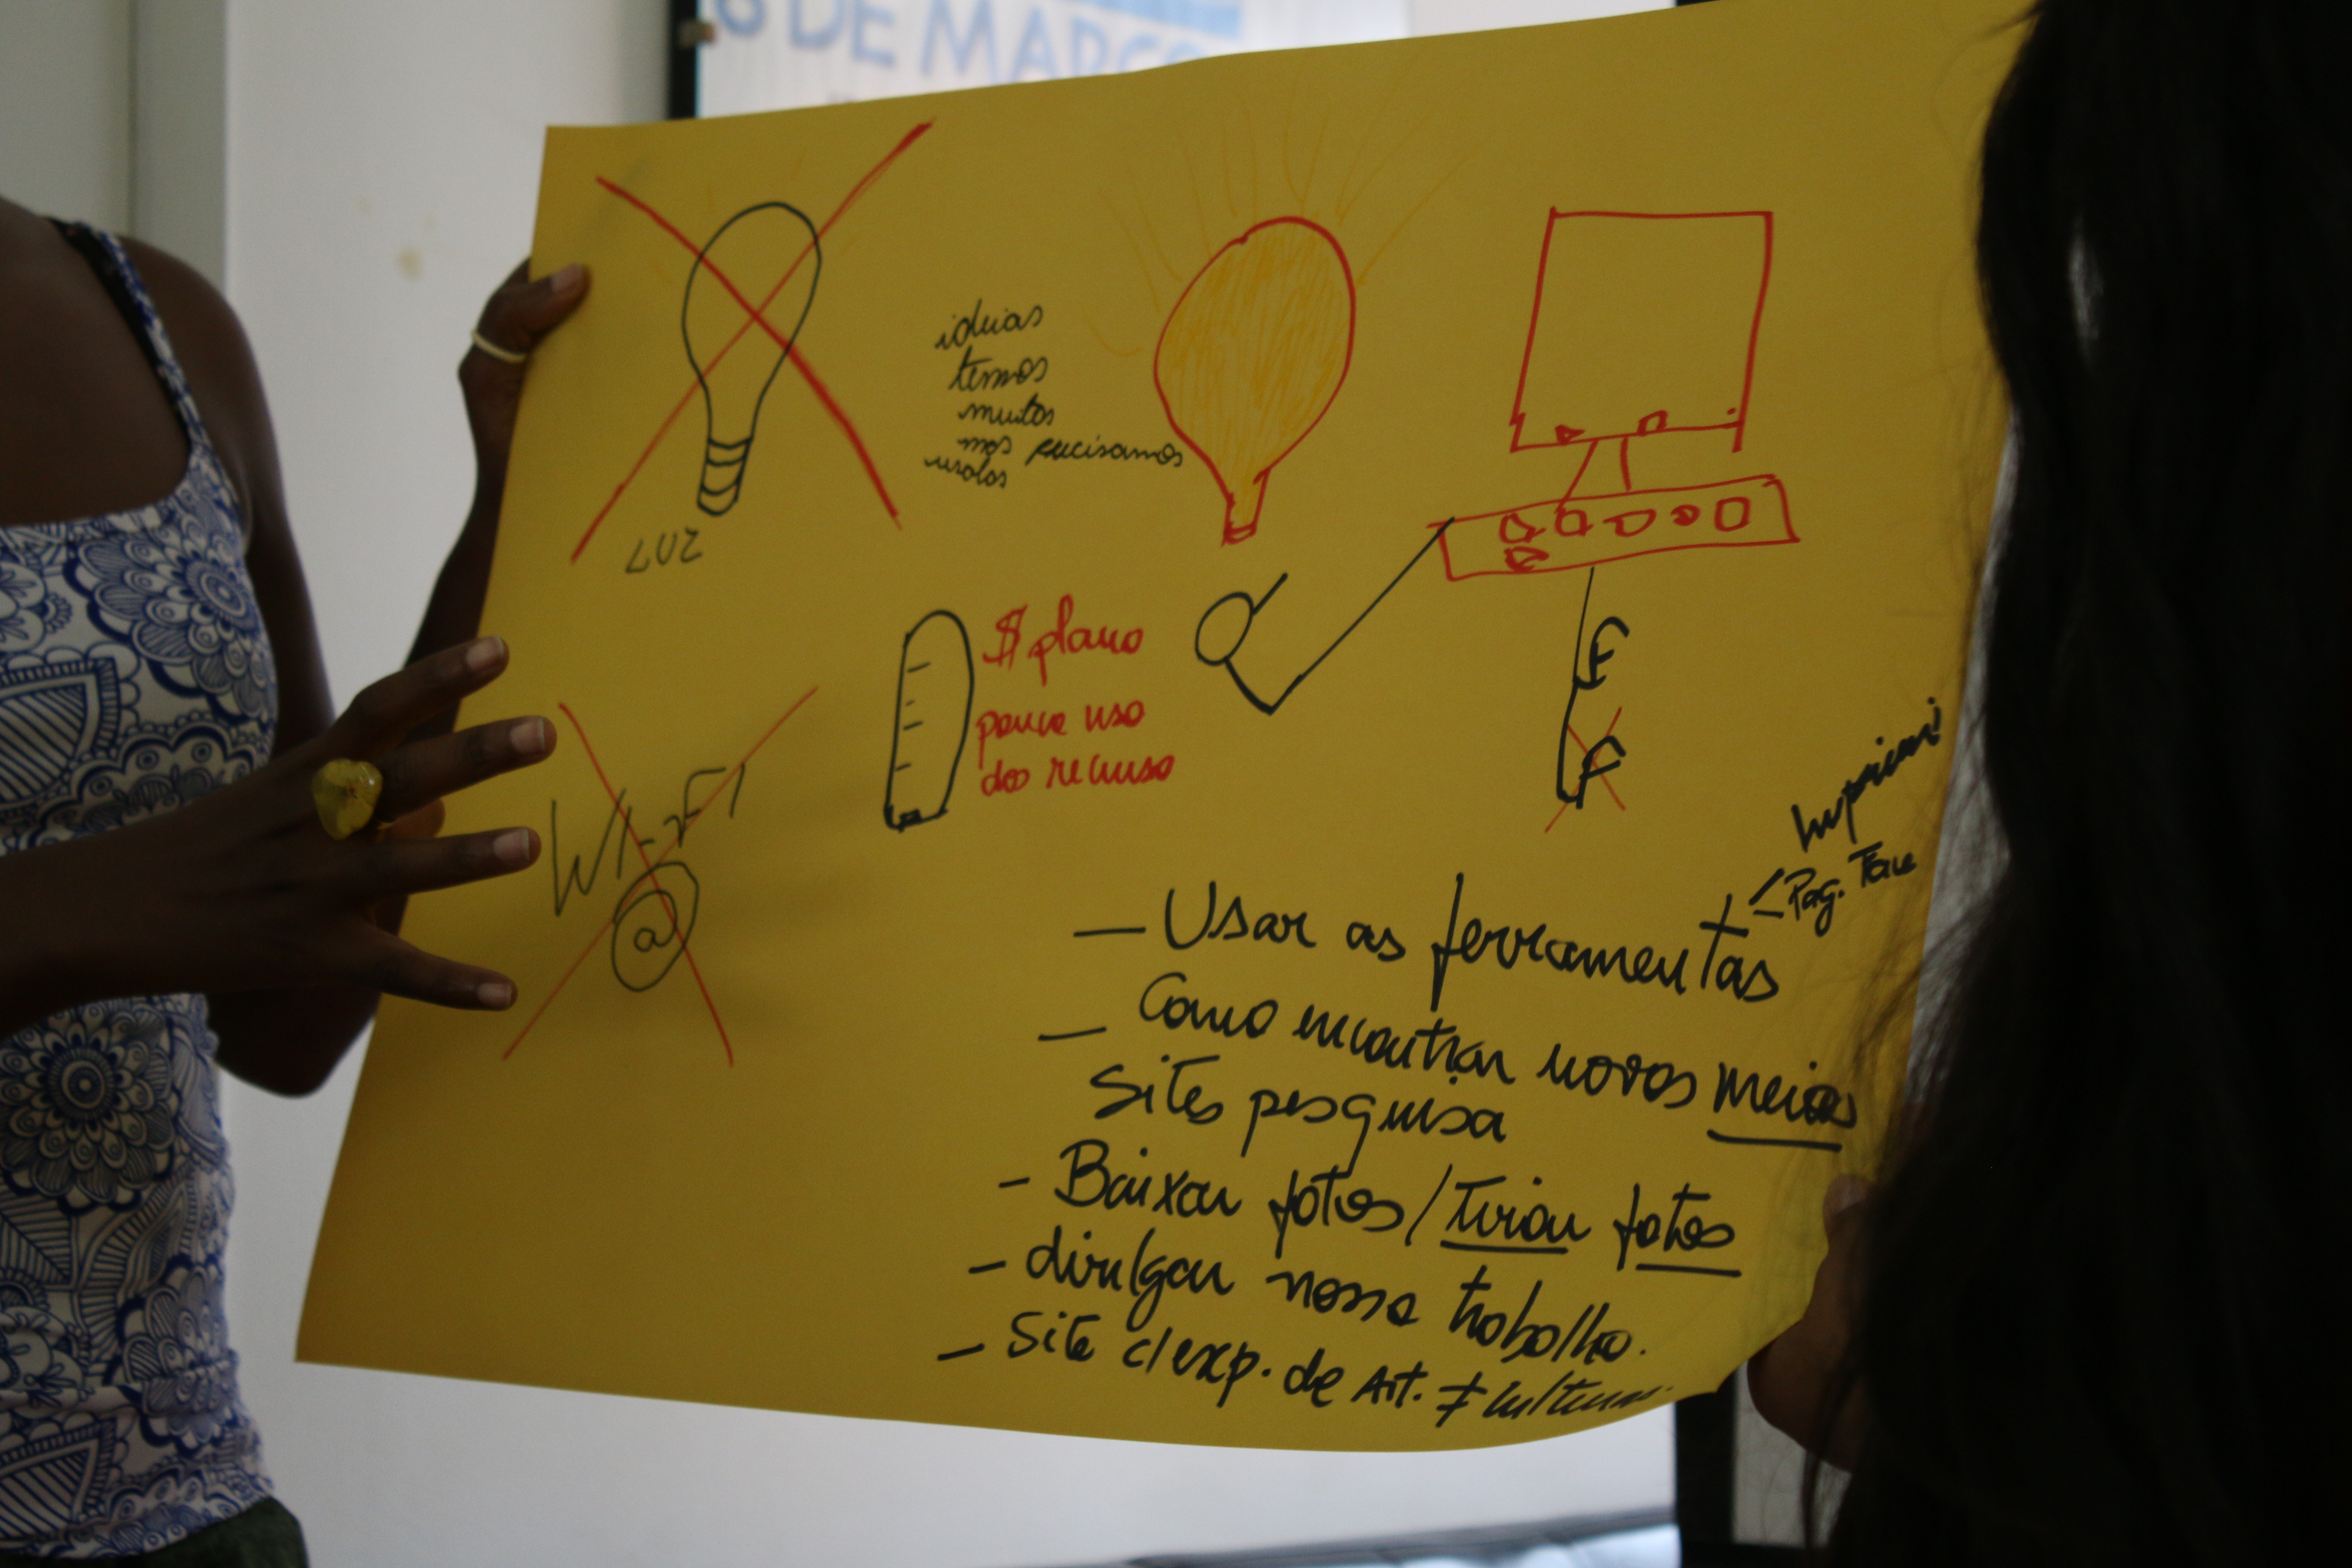 6 DE MARÇO
LUZ
ideias
temos
muitas
mas precisamos
usalas
$ plano
pouco uso
do recurso
WI-FI
@
F
F
Imprimir
Pag. Face
— Usar as ferramentas
— Como encontrar novos meios
Sites pesquisa
- Baixar fotos/Tirar fotos
- divulgar nosso trabalho.
- Site c/ exp. de Art. ≠